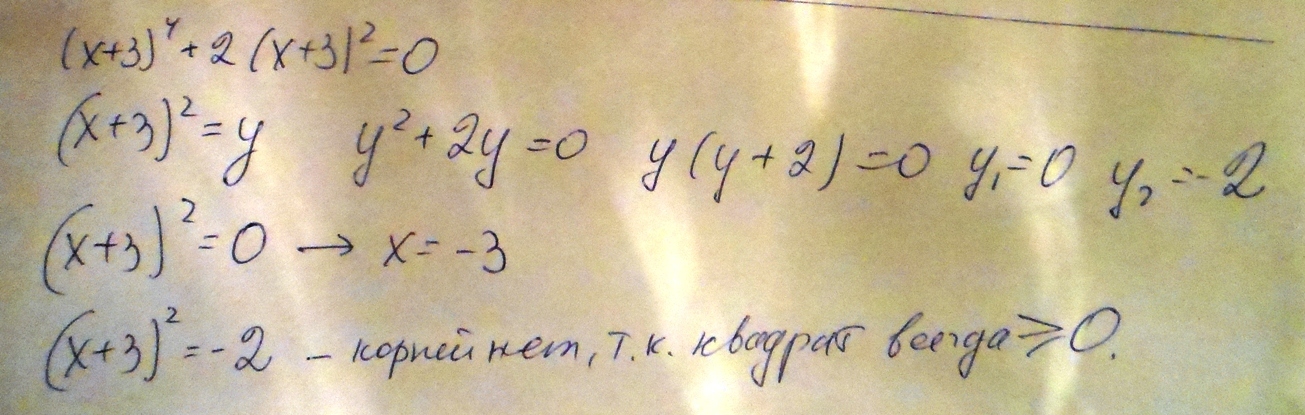 (x+3)⁴+2(x+3)²=0
(x+3)²=y y²+2y=0 y(y+2)=0 y₁=0 y₂=-2
(x+3)²=0 → x=-3
(x+3)²=-2 – корней нет, т.к. квадрат всегда ≥0.